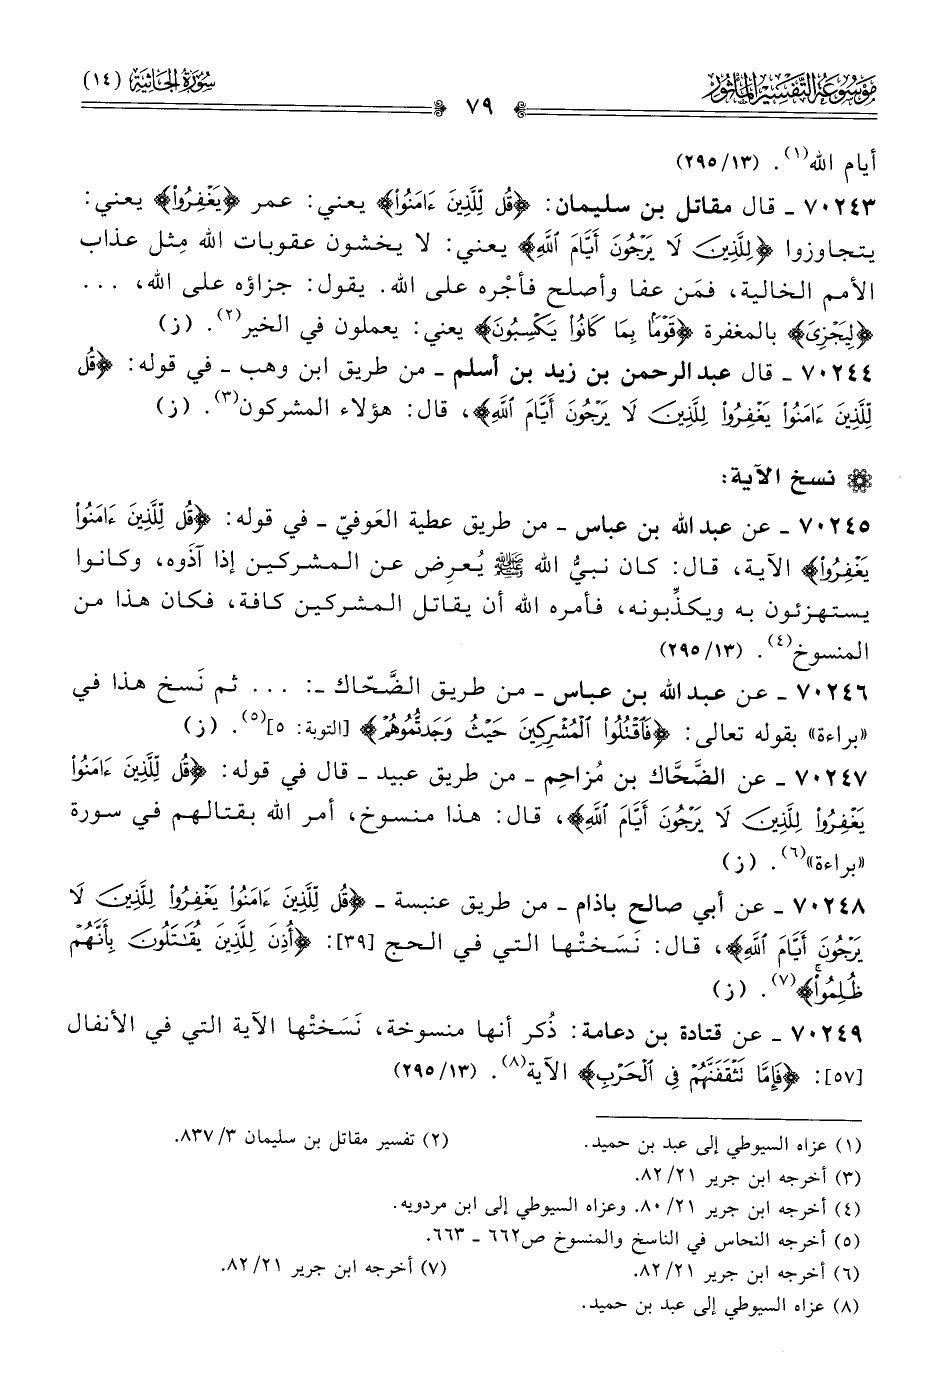 موسوعة التفسير المأثور
٧٩
سورة الجاثية (١٤)
أيام الله(١). (٢٩٥/١٣)
٧٠٢٤٣ ـ قال مقاتل بن سليمان: ﴿قُل لِّلَّذِينَ ءَامَنُواْ﴾ يعني: عمر ﴿يَغْفِرُواْ﴾ يعني:
يتجاوزوا ﴿لِلَّذِينَ لَا يَرْجُونَ أَيَّامَ ٱللَّهِ﴾ يعني: لا يخشون عقوبات الله مِثل عذاب
الأمم الخالية، فمَن عفا وأصلح فأجْره على الله. يقول: جزاؤه على الله، ...
﴿لِيَجْزِىَ﴾ بالمغفرة ﴿قَوْمًۢا بِمَا كَانُواْ يَكْسِبُونَ﴾ يعني: يعملون في الخير(٢). (ز)
٧٠٢٤٤ ـ قال عبدالرحمن بن زيد بن أسلم ـ من طريق ابن وهب ـ في قوله: ﴿قُل
لِّلَّذِينَ ءَامَنُواْ يَغْفِرُواْ لِلَّذِينَ لَا يَرْجُونَ أَيَّامَ ٱللَّهِ﴾، قال: هؤلاء المشركون(٣). (ز)
نسخ الآية:
٧٠٢٤٥ ـ عن عبدالله بن عباس ـ من طريق عطية العَوفيّ ـ في قوله: ﴿قُل لِّلَّذِينَ ءَامَنُواْ
يَغْفِرُواْ﴾ الآية، قال: كان نبيُّ الله ﷺ يُعرِض عن المشركين إذا آذَوه، وكانوا
يستهزئون به ويكذِّبونه، فأمره الله أن يقاتل المشركين كافة، فكان هذا من
المنسوخ(٤). (٢٩٥/١٣)
٧٠٢٤٦ ـ عن عبدالله بن عباس ـ من طريق الضَّحّاك ـ: ... ثم نَسخ هذا في
«براءة» بقوله تعالى: ﴿فَٱقْتُلُواْ ٱلْمُشْرِكِينَ حَيْثُ وَجَدتُّمُوهُمْ﴾ [التوبة: ٥](٥). (ز)
٧٠٢٤٧ ـ عن الضَّحَّاك بن مُزاحِم ـ من طريق عبيد ـ قال في قوله: ﴿قُل لِّلَّذِينَ ءَامَنُواْ
يَغْفِرُواْ لِلَّذِينَ لَا يَرْجُونَ أَيَّامَ ٱللَّهِ﴾، قال: هذا منسوخ، أمر الله بقتالهم في سورة
«براءة»(٦). (ز)
٧٠٢٤٨ ـ عن أبي صالح باذام ـ من طريق عنبسة ـ ﴿قُل لِّلَّذِينَ ءَامَنُواْ يَغْفِرُواْ لِلَّذِينَ لَا
يَرْجُونَ أَيَّامَ ٱللَّهِ﴾، قال: نَسَختْها التي في الحج [٣٩]: ﴿أُذِنَ لِلَّذِينَ يُقَٰتَلُونَ بِأَنَّهُمْ
ظُلِمُواْ﴾(٧). (ز)
٧٠٢٤٩ ـ عن قتادة بن دعامة: ذُكر أنها منسوخة، نَسَختْها الآية التي في الأنفال
[٥٧]: ﴿فَإِمَّا تَثْقَفَنَّهُمْ فِى ٱلْحَرْبِ﴾ الآية(٨). (٢٩٥/١٣)
(١) عزاه السيوطي إلى عبد بن حميد.
(٢) تفسير مقاتل بن سليمان ٨٣٧/٣.
(٣) أخرجه ابن جرير ٨٢/٢١.
(٤) أخرجه ابن جرير ٨٠/٢١. وعزاه السيوطي إلى ابن مردويه.
(٥) أخرجه النحاس في الناسخ والمنسوخ ص٦٦٢ ـ ٦٦٣.
(٦) أخرجه ابن جرير ٨٢/٢١.
(٧) أخرجه ابن جرير ٨٢/٢١.
(٨) عزاه السيوطي إلى عبد بن حميد.